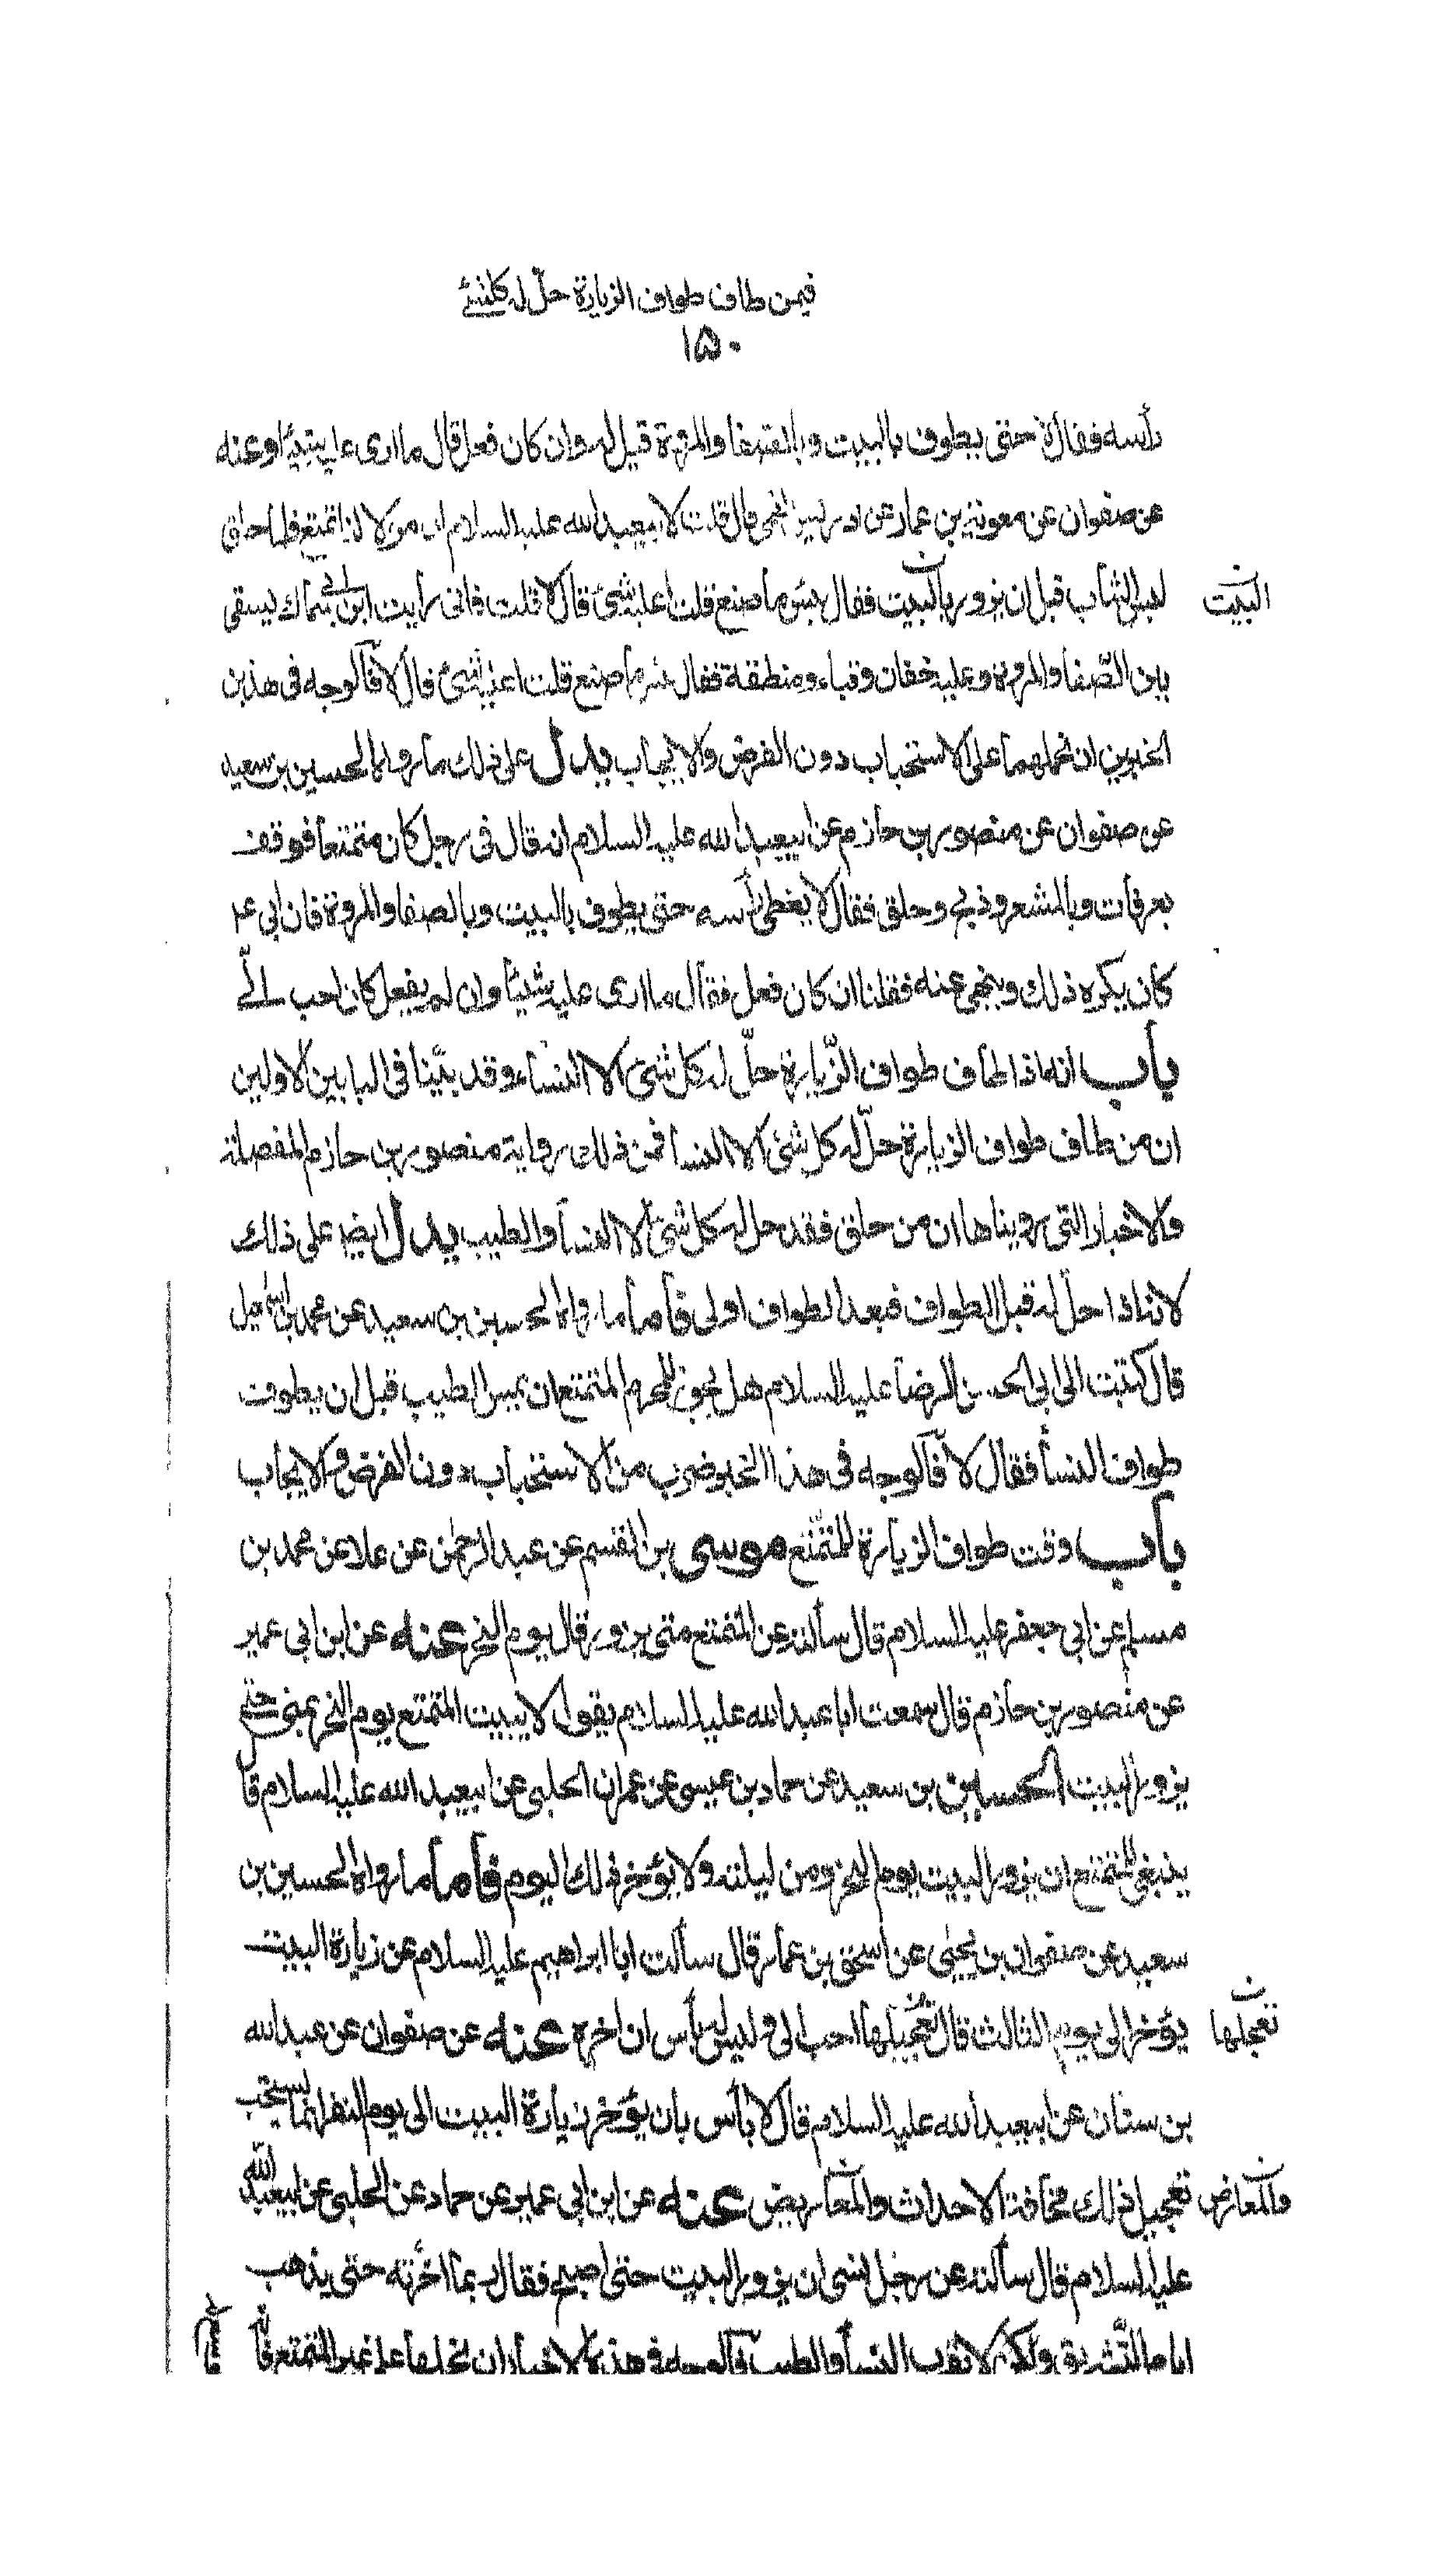 فيمن طاف طواف الزيارة حلّ له كلشئ
١٥٠
رأسه فقال لا حتى يطوف بالبيت وبالصفا والمروة قيل له وان كان فعل قال ما ارى عليه شيئا وعنه
عن صفوان عن معوية بن عمار عن ادريس القمى قال قلت لابيعبدالله عليه السلام ان مولى لنا تمتع فلما حلق
لبس الثياب قبل ان يزور بالبيت فقال بئس ما صنع قلت اعليه شئ قال لا قلت فانى رأيت ابن ابى سماك يسقى
البيت
بين الصّفا والمروة وعليه خفان وقباء ومنطقة فقال بئس ما صنع قلت اعليه شئ قال لا فالوجه فى هذين
الخبرين ان نحملهما على الاستحباب دون الفرض والايجاب يدل على ذلك ما رواه الحسين بن سعيد
عن صفوان عن منصور بن حازم عن ابيعبدالله عليه السلام انه قال فى رجل كان متمتعا فوقف
بعرفات وبالمشعر وذبح وحلق فقال لا يغطى رأسه حتى يطوف بالبيت وبالصفا والمروة فان ابى ع
كان يكره ذلك وينهى عنه فقلنا ان كان فعل فقال ما ارى عليه شيئا وان لم يفعل كان احب الىّ
باب انه اذا طاف طواف الزّيارة حلّ له كل شئ الا النساء وقد بيّنا فى البابين الاولين
ان من طاف طواف الزيارة حلّ له كل شئ الا النسا فمن ذلك رواية منصور بن حازم المفصلة
والاخبار التى رويناها ان من حلق فقد حل له كل شئ الا النسا والطيب يدل ايضا على ذلك
لانه اذا حلّ له قبل الطواف فبعد الطواف اولى فأما ما رواه الحسين بن سعيد عن محمد بن اسمعيل
قال كتبت الى ابى الحسن الرضا عليه السلام هل يجوز للمحرم المتمتع ان يمس الطيب قبل ان يطوف
طواف النسأ فقال لا فالوجه فى هذا الخبر ضرب من الاستحباب دون الفرض والايجاب
باب وقت طواف الزيارة للمتمتع موسى بن القسم عن عبد الرحمن عن علا عن محمد بن
مسلم عن ابى جعفر عليه السلام قال سألته عن المتمتع متى يزور قال يوم النحر عنه عن ابن ابى عمير
عن منصور بن حازم قال سمعت ابا عبد الله عليه السلام يقول لا يبيت المتمتع يوم النحر بمنى حتى
يزور البيت الحسين بن سعيد عن حماد بن عيسى عن عمران الحلبى عن ابيعبد الله عليه السلام قا
ينبغى للمتمتع ان يزور البيت يوم النحر ومن ليلته ولا يؤخر ذلك اليوم فأما ما رواه الحسين بن
سعيد عن صفوان بن يحيى عن اسحق بن عمار قال سألت ابا ابراهيم عليه السلام عن زيارة البيت
يؤخر الى يوم الثالث قال تعجيلها احب الى وليس به بأس ان اخره عنه عن صفوان عن عبد الله
تعجلها
بن سنان عن ابيعبد الله عليه السلام قال لا بأس بان يؤخر زيارة البيت الى يوم النفر انما يستحب
تعجيل ذلك مخافة الاحداث والمعاريض عنه عن ابن ابى عمير عن حماد عن الحلبى عن ابيعبد الله
والمعارض
عليه السلام قال سألته عن رجل نسى ان يزور البيت حتى اصبح فقال ربما اخرته حتى يذهب
ايام التّشريق ولكن لا تقرب النسأ والطيب فالوجه فى هذه الاخبار ان نحملها على غير المتمتع فا